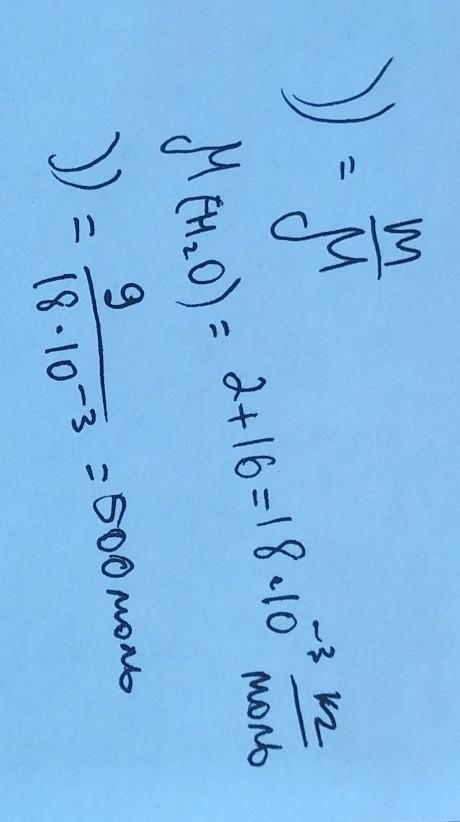 ν = m/M
M(H₂O) = 2+16=18·10⁻³ кг/моль
ν = 9/18·10⁻³ = 500 моль